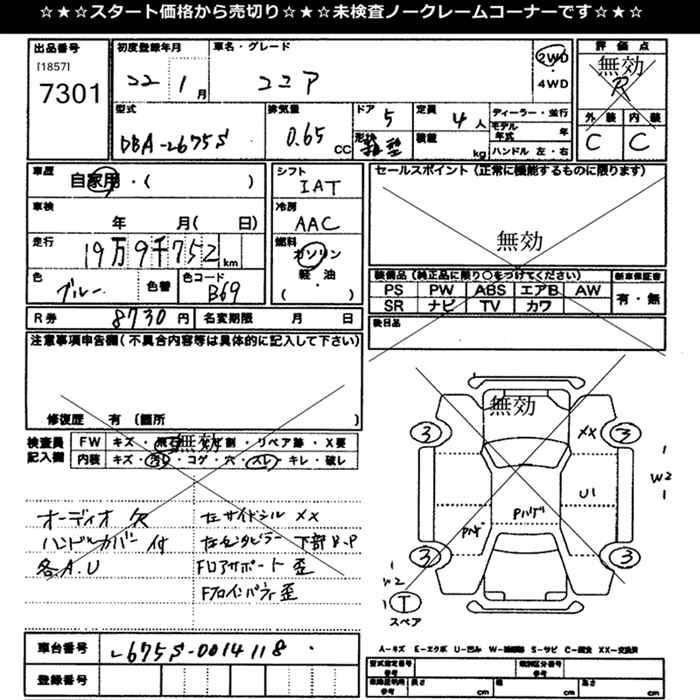 ☆★☆★スタート価格から売切り☆★☆★未検査ノークレームコーナーです☆★☆
出品番号
[1857]
7301
初度登録年月
22 1 月
車名・グレード
ココア
2WD
・
4WD
評価点
無効
R
外装 内装
C C
型式
DBA-L675S
排気量
0.65 CC
ドア
5
形状
箱型
定員
4 人
積載
kg
ディーラー・並行
モデル年式 年
ハンドル 左・右
車歴
自家用・( )
車検
年 月( 日)
走行
19万9千752 km
色
ブルー
色替
色コード
B69
シフト
IAT
冷房
AAC
燃料
ガソリン
軽・油
( )
セールスポイント(正常に機能するものに限ります)
無効
装備品(純正品に限り○をつけてください)
PS PW ABS エアB AW
SR ナビ TV カワ
新車保証書
有・無
後日品
R券 8730 円
名変期限 月 日
注意事項申告欄(不具合内容等は具体的に記入して下さい)
修復歴 有(箇所
検査員
記入欄
FW キズ・飛石・ ・リペア跡・X要
無効
内装 キズ・汚レ・コゲ・穴・スレ・キレ・破レ
オーディオ欠
ハンドルカバー付
各A.U
左サイドシル XX
左センタピラー下部B.P
Fロアサポート歪
Fフロインパネ歪
無効
3
3
XX
U1
W2
3
3
W2
T
スペア
車台番号
L675S-0014118
登録番号
A-キズ E-エクボ U-凹み W-補修跡 S-サビ C-腐食 XX-交換済
型式指定番号
参考
類別区分番号
参考
長さ cm
幅 cm
高さ cm